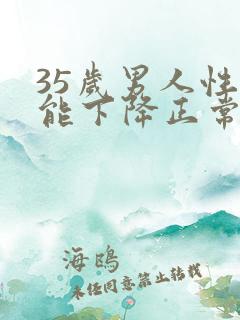 35歲男人性
能下降正常
海鴎
未经同意禁止转载